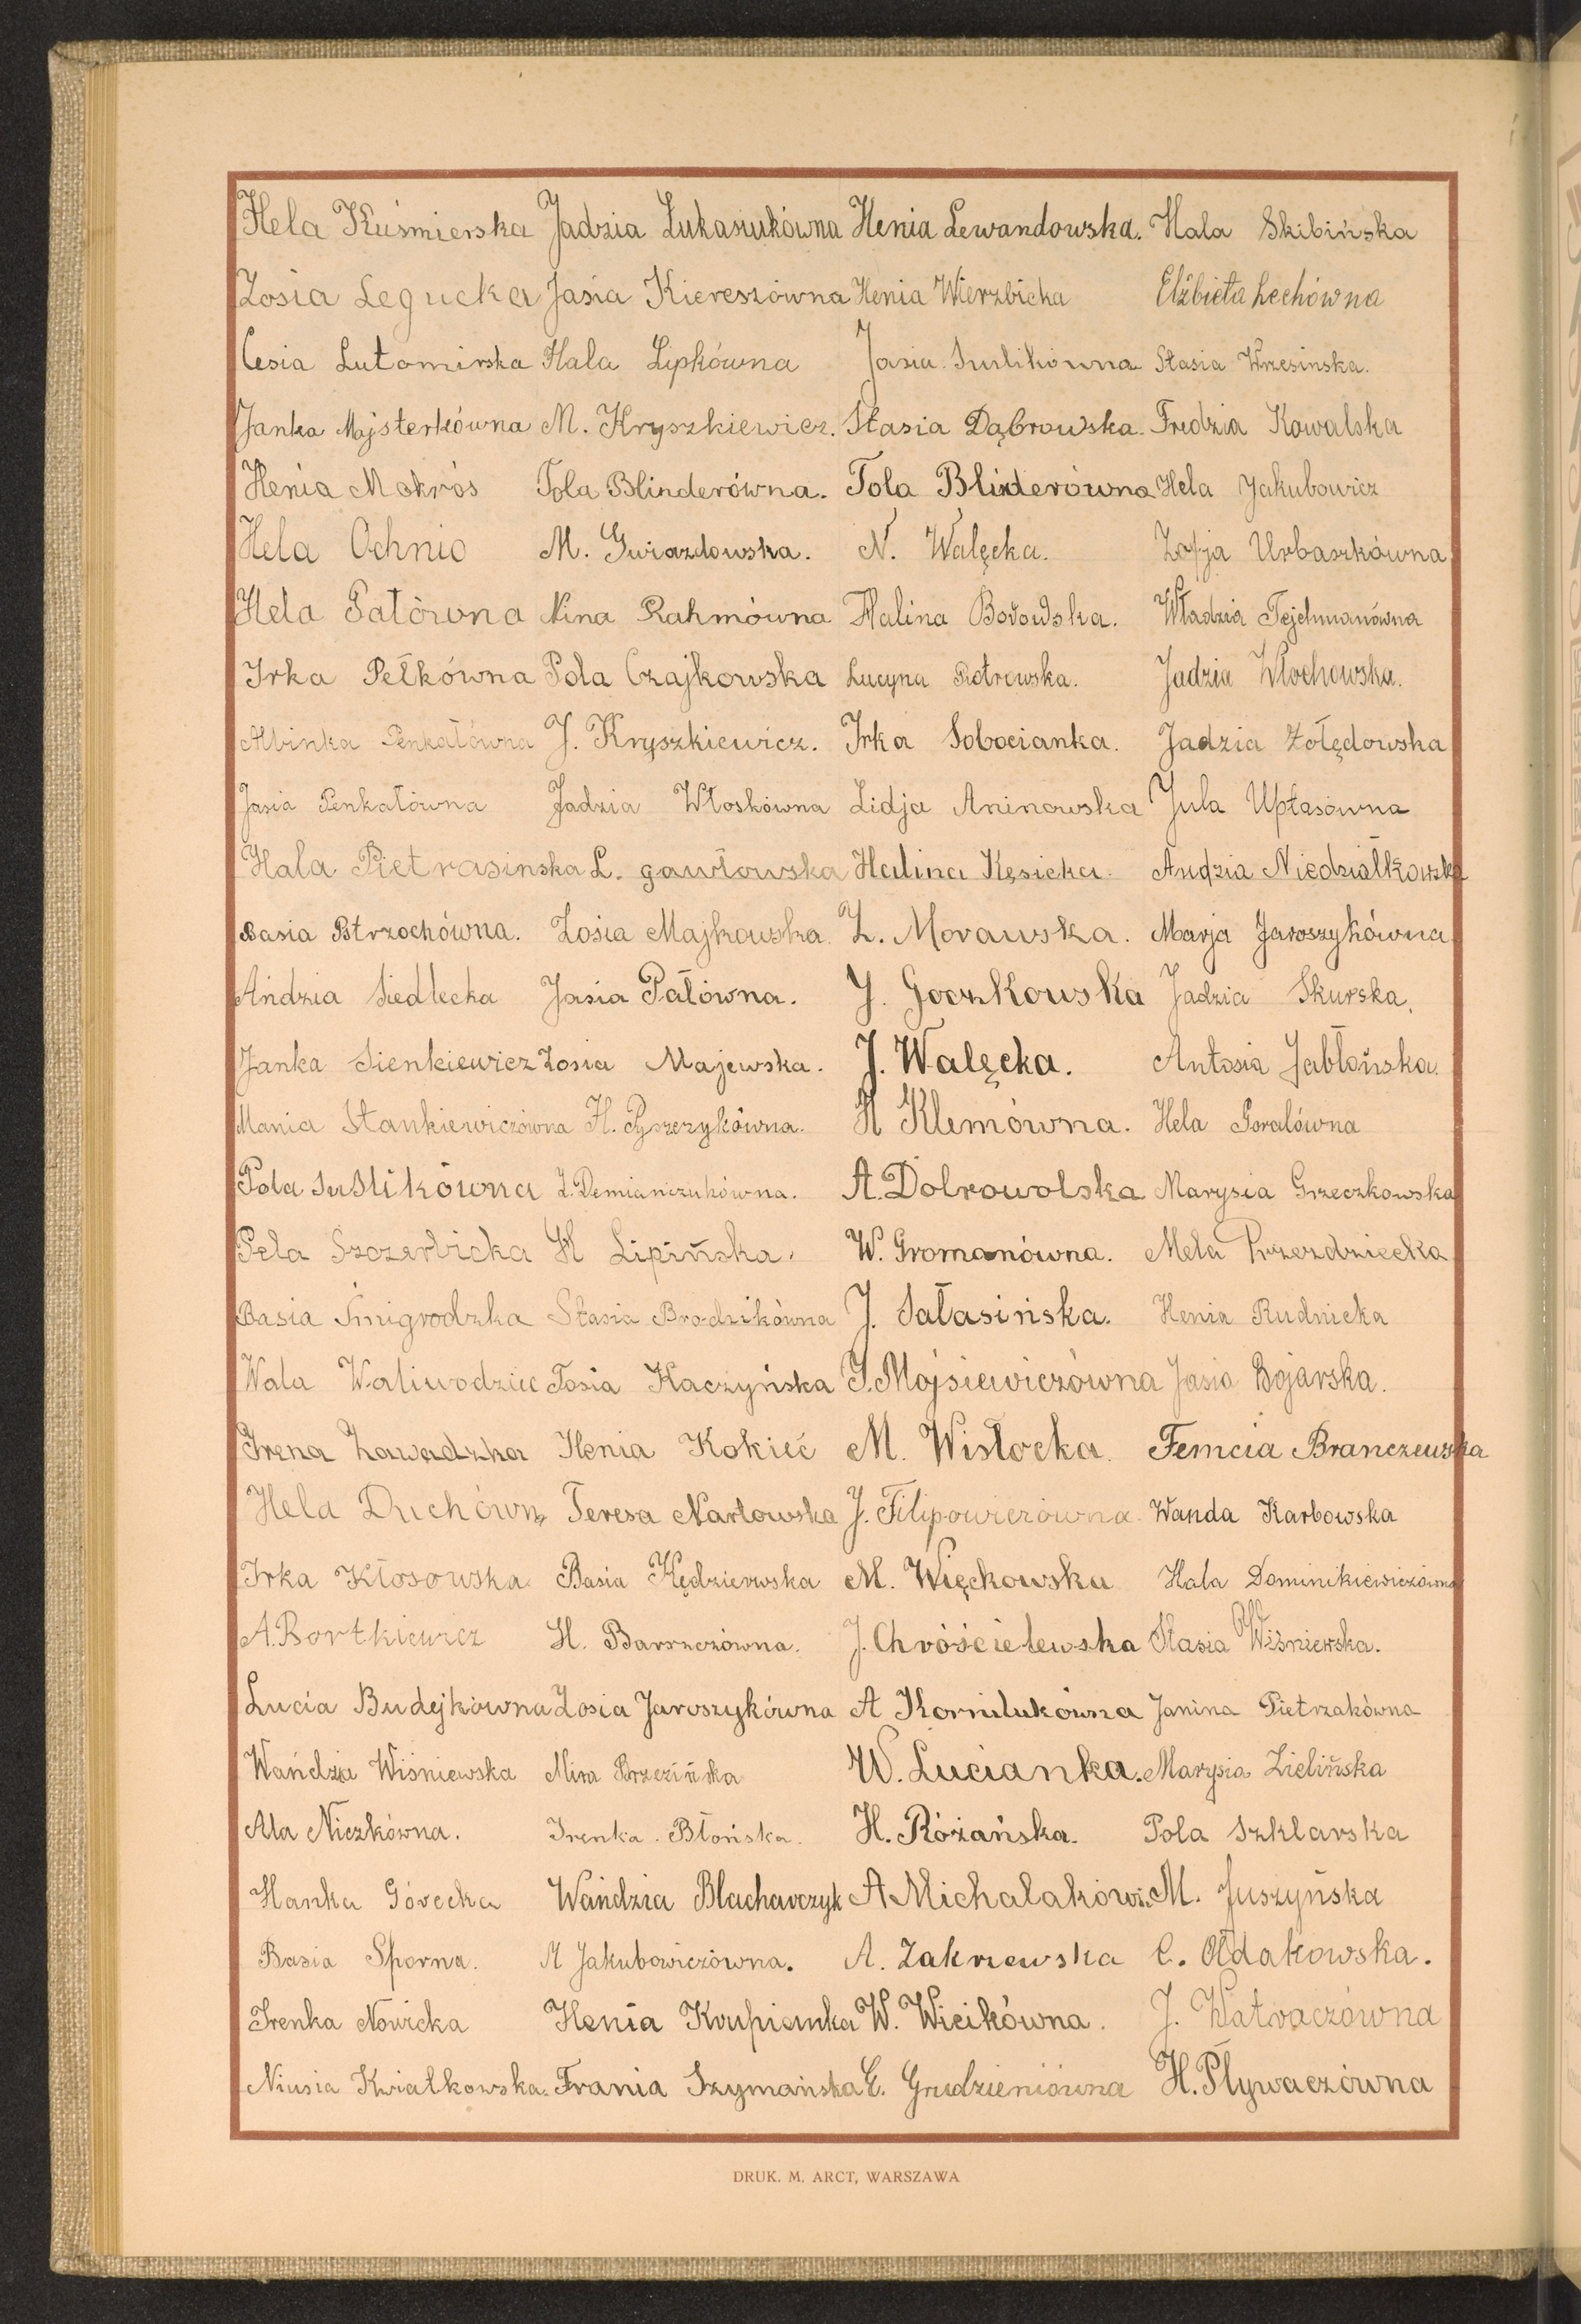 Hela Kuśmierska Jadzia Łukasiukówna Henia Lewandowska. Hala Skibińska
Zosia Legucka Jasia Kiereszówna Henia Wierzbicka Elżbieta Lechówna
Cesia Lutomirska Hala Lipkówna Jasia Suslikówna Stasia Wrzesinska.
Janka Majsterkówna M. Kryszkiewicz. Stasia Dąbrowska. Fredzia Kowalska
Henia Mokrós Tola Blinderówna. Tola Blinderówna Hela Jakubowicz
Hela Ochnio M. Gwiazdowska. N. Walęcka. Zofja Urbaszkówna
Hela Pałówna Nina Rahmówna Halina Borowska. Władzia Tejchmanówna
Irka Pełkówna Pola Czajkowska Lucyna Piotrowska. Jadzia Włochowska.
Albinka Penkałówna J. Kryszkiewicz. Irka Sobocianka. Jadzia Żołędowska
Jasia Penkałówna Jadzia Włoskówna Lidja Aninowska Jula Upłasówna
Hala Pietrasinska L. gawłowska Halina Kęsicka. Andzia Niedziałkowska
Basia Pstrzochówna. Zosia Majkowska. Z. Morawska. Marja Jaroszykówna
Andzia Siedlecka Jasia Pałówna. J. Goczkowska Jadzia Skurska.
Janka Sienkiewicz Zosia Majewska. J. Walęcka. Antosia Jabłońska.
Mania Stankiewiczówna H. Pyszczykówna. H Klemówna. Hela Goralówna
Pola Suslikówna Z. Demianczukówna. A. Dobrowolska Marysia Grzeczkowska
Pela Szczerbicka H Lipińska. W. Gromanówna. Mela Przezdziecka
Basia Śmigrodzka Stasia Brodzikówna J. Sałasińska. Henia Rudnicka
Wala Waliwodziec Tosia Kaczyńska J. Mojsiewiczówna Jasia Bojarska.
Irena Zawadzka Henia Kokieć M. Wisłocka. Femcia Branczewska
Hela Duchówna Teresa Nartowska J. Filipowiczówna. Wanda Karbowska
Irka Kłosowska Basia Kędzierwska M. Więckowska Hala Dominikiewiczówna
A. Bortkiewicz H. Barszczówna. J. Chróścielewska Stasia Wiśniewska.
Lucia Budejkówna Zosia Jaroszykówna A Kornilukówna Janina Pietrzakówna
Wańdzia Wiśniewska Mira Brzezińska W. Lucianka. Marysia Zielińska
Ala Niczkówna. Irenka Błońska. H. Różańska. Pola Szklarska
Hanka Górecka Wańdzia Blacharczyk A Michalaków. M. Juszyńska
Basia Sporna. M Jakubowiczówna. A. Zakrzewska C. Ołdakowska.
Irenka Nowicka Henia Krupianka W. Wicikówna. J. Watraczówna
Niusia Kwiatkowska. Frania Szymańska E. Grudzieniówna H. Pływaczówna
DRUK. M. ARCT, WARSZAWA